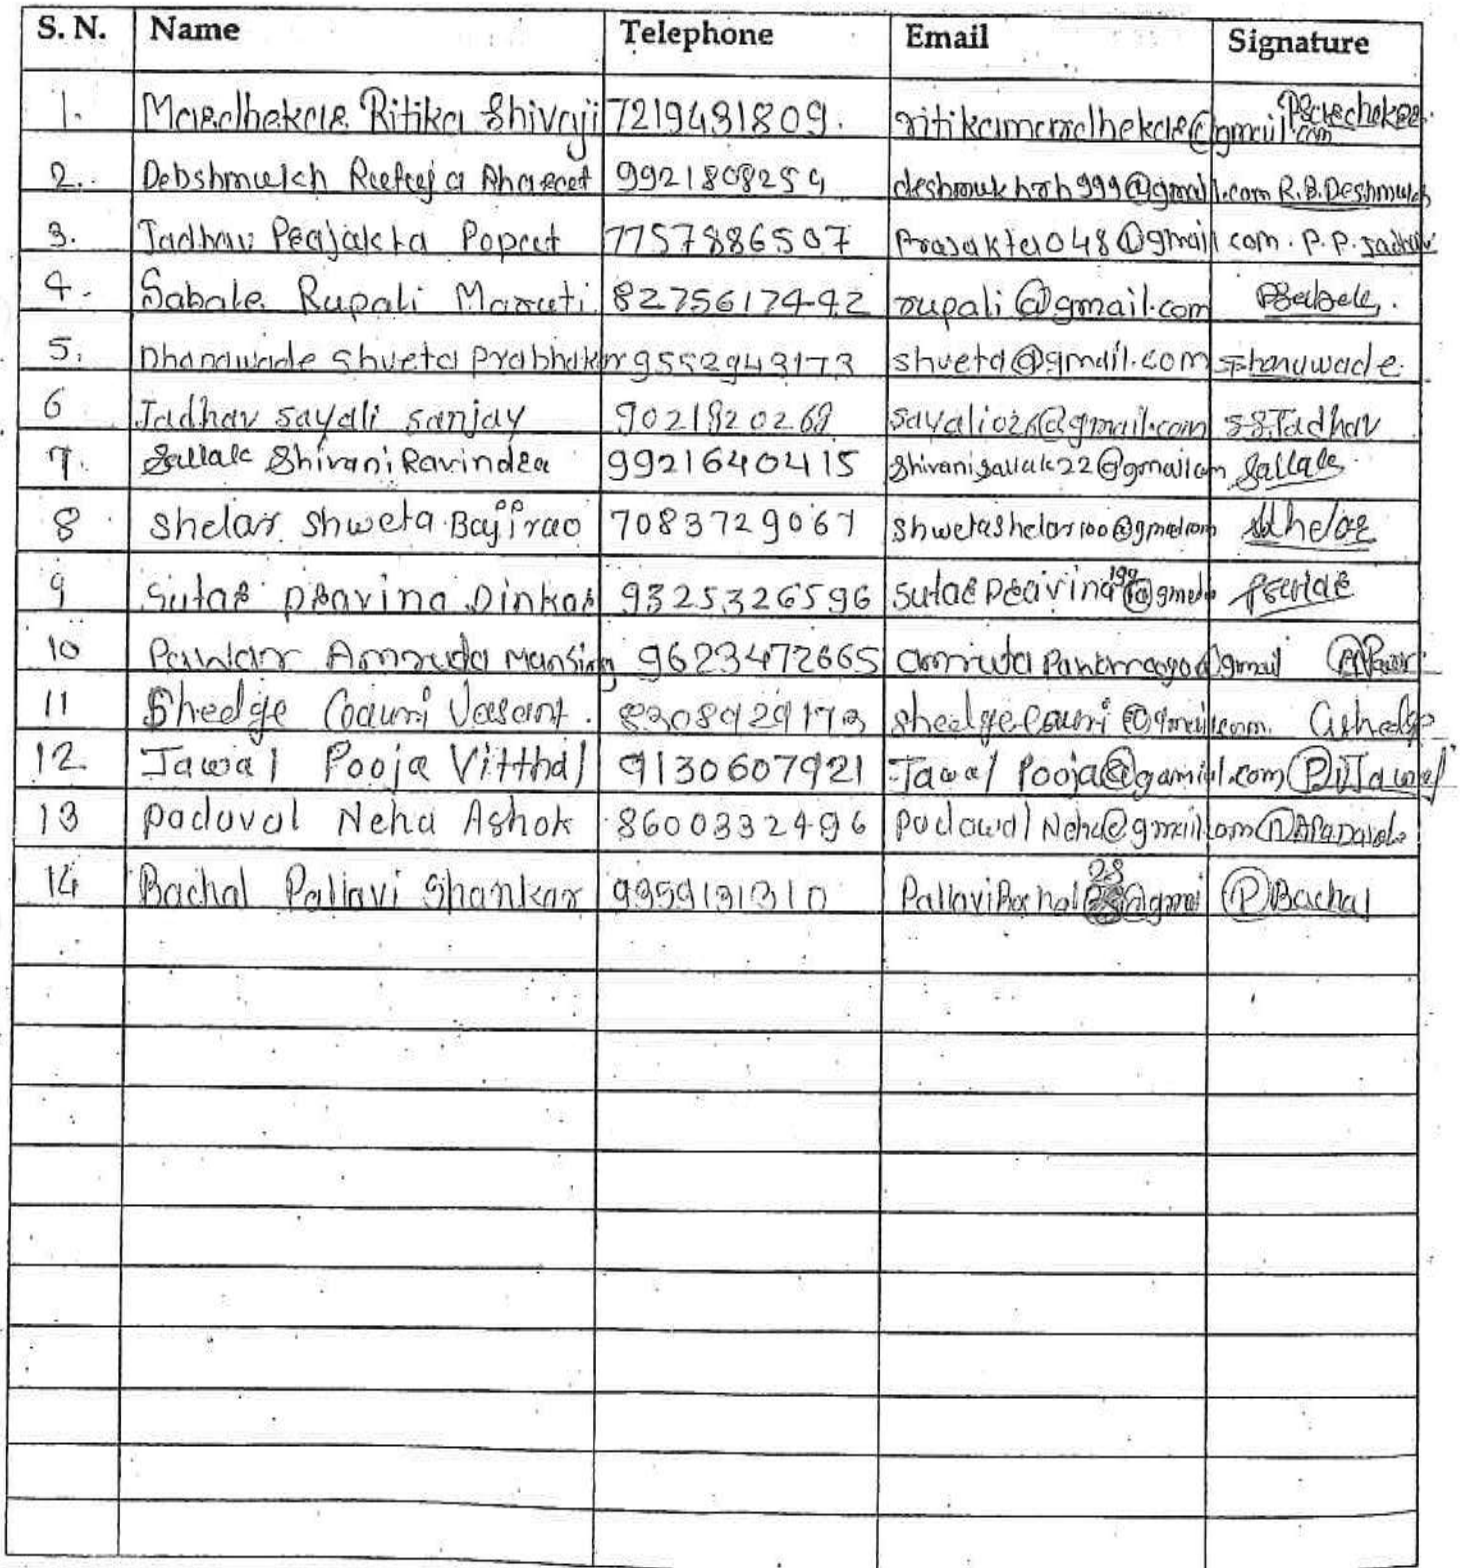 S. N. Name Telephone Email Signature
1. Mardhekar Ritika Shivaji 7219431809. ritikamardhekar@gmail.com
2. Debshmukh Rutuja Bharat 9921808259 deshmukhrh999@gmail.com R.B.Deshmukh
3. Jadhav Prajakta Popat 7757886507 Prajakta048@gmail com. P.P. Jadhav
4. Sabale Rupali Maruti 8275617442 rupali@gmail.com
5. Dhanawade Shveta Prabhakar 9552943173 shveta@gmail.com
6 Jadhav sayali sanjay 9021820268 sayali026@gmail.com S.S.Jadhav
7. Sallak Shivani Ravindra 9921640415 Shivanisallak22@gmailcom
8 Shelar Shweta Bajirao 7083729067 Shwetashelar100@gmailcom Shelar
9 Sutar Pravina Dinkar 9325326596 SutarPravina199@gmail
10 Pawar Amruda Mansing 9623472665 @gmail APawar
11 Shedge Gauri Vasant. 8308929173 shedgeGauri@gmail.com. GShedge
12. Jawal Pooja Vitthal 9130607921 Jawal Pooja@gamil.com P.V.Jawal
13 Padaval Neha Ashok 8600332496 Padawal Neha@gmail.com
14 Bachal Pallavi Shankar 9959131310 PallaviBachal28@gmai P Bachal